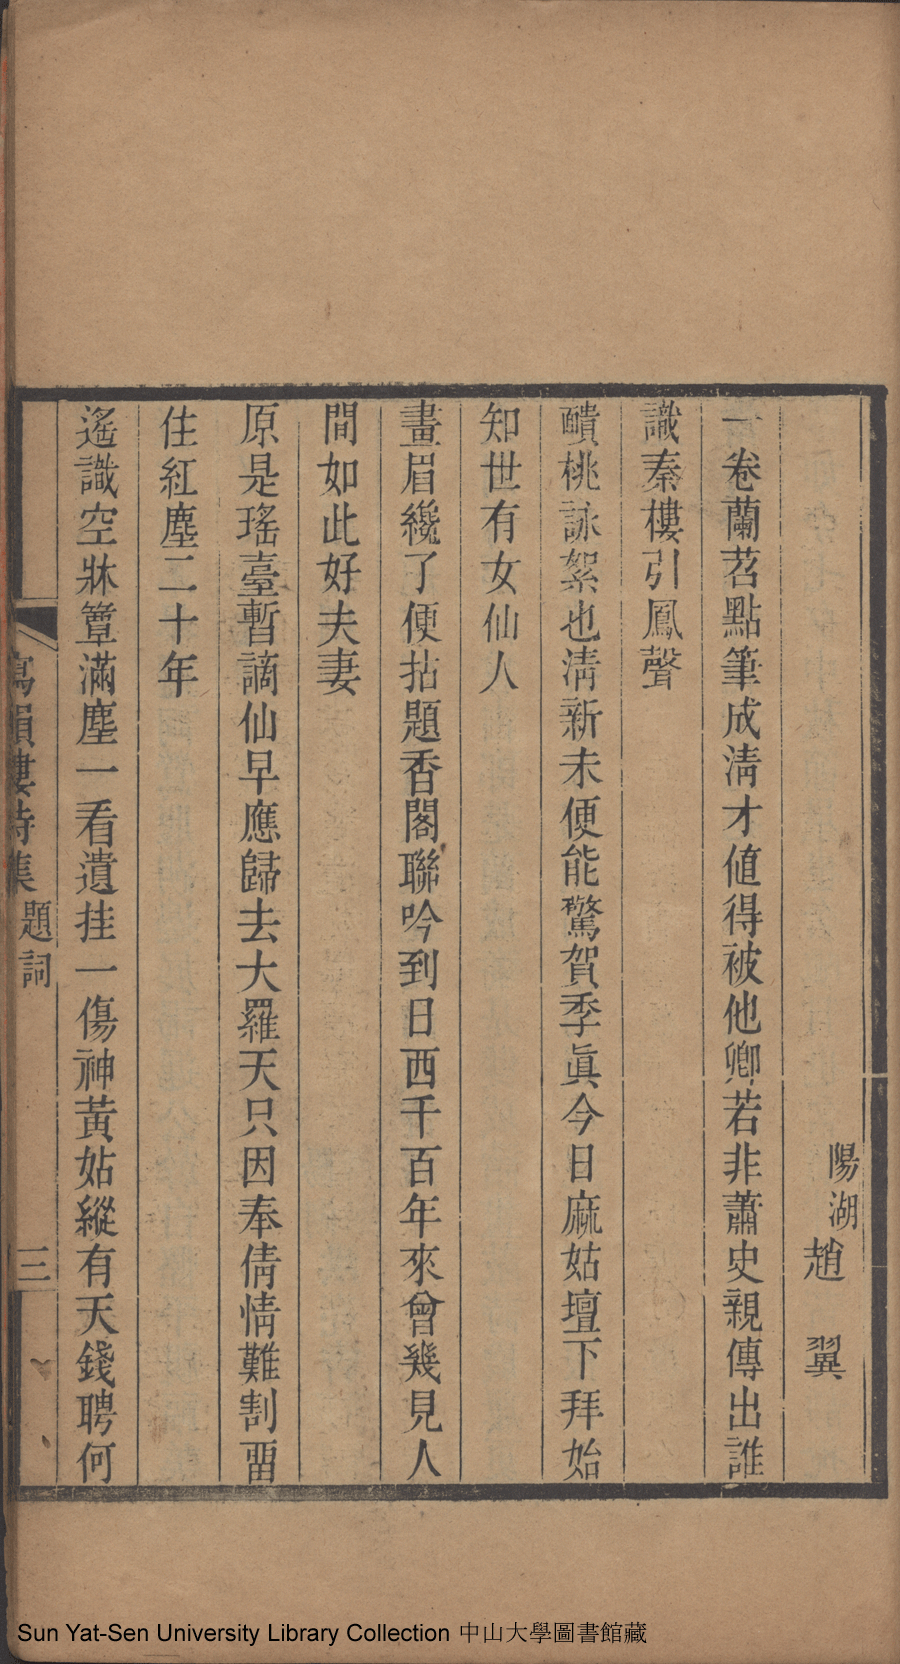 陽湖趙 翼
一卷蘭苕點筆成淸才値得被他卿若非蕭史親傳出誰
識秦樓引鳳聲
醻桃詠絮也淸新未便能驚賀季眞今日麻姑壇下拜始
知世有女仙人
畫眉纔了便拈題香閣聯吟到日西千百年來曾幾見人
間如此好夫妻
原是瑤臺暫謫仙早應歸去大羅天只因奉倩情難割畱
住紅塵二十年
遙識空牀簟滿塵一看遺挂一傷神黃姑縱有天錢聘何
寫韻樓詩集 題詞 三
Sun Yat-Sen University Library Collection 中山大學圖書館藏